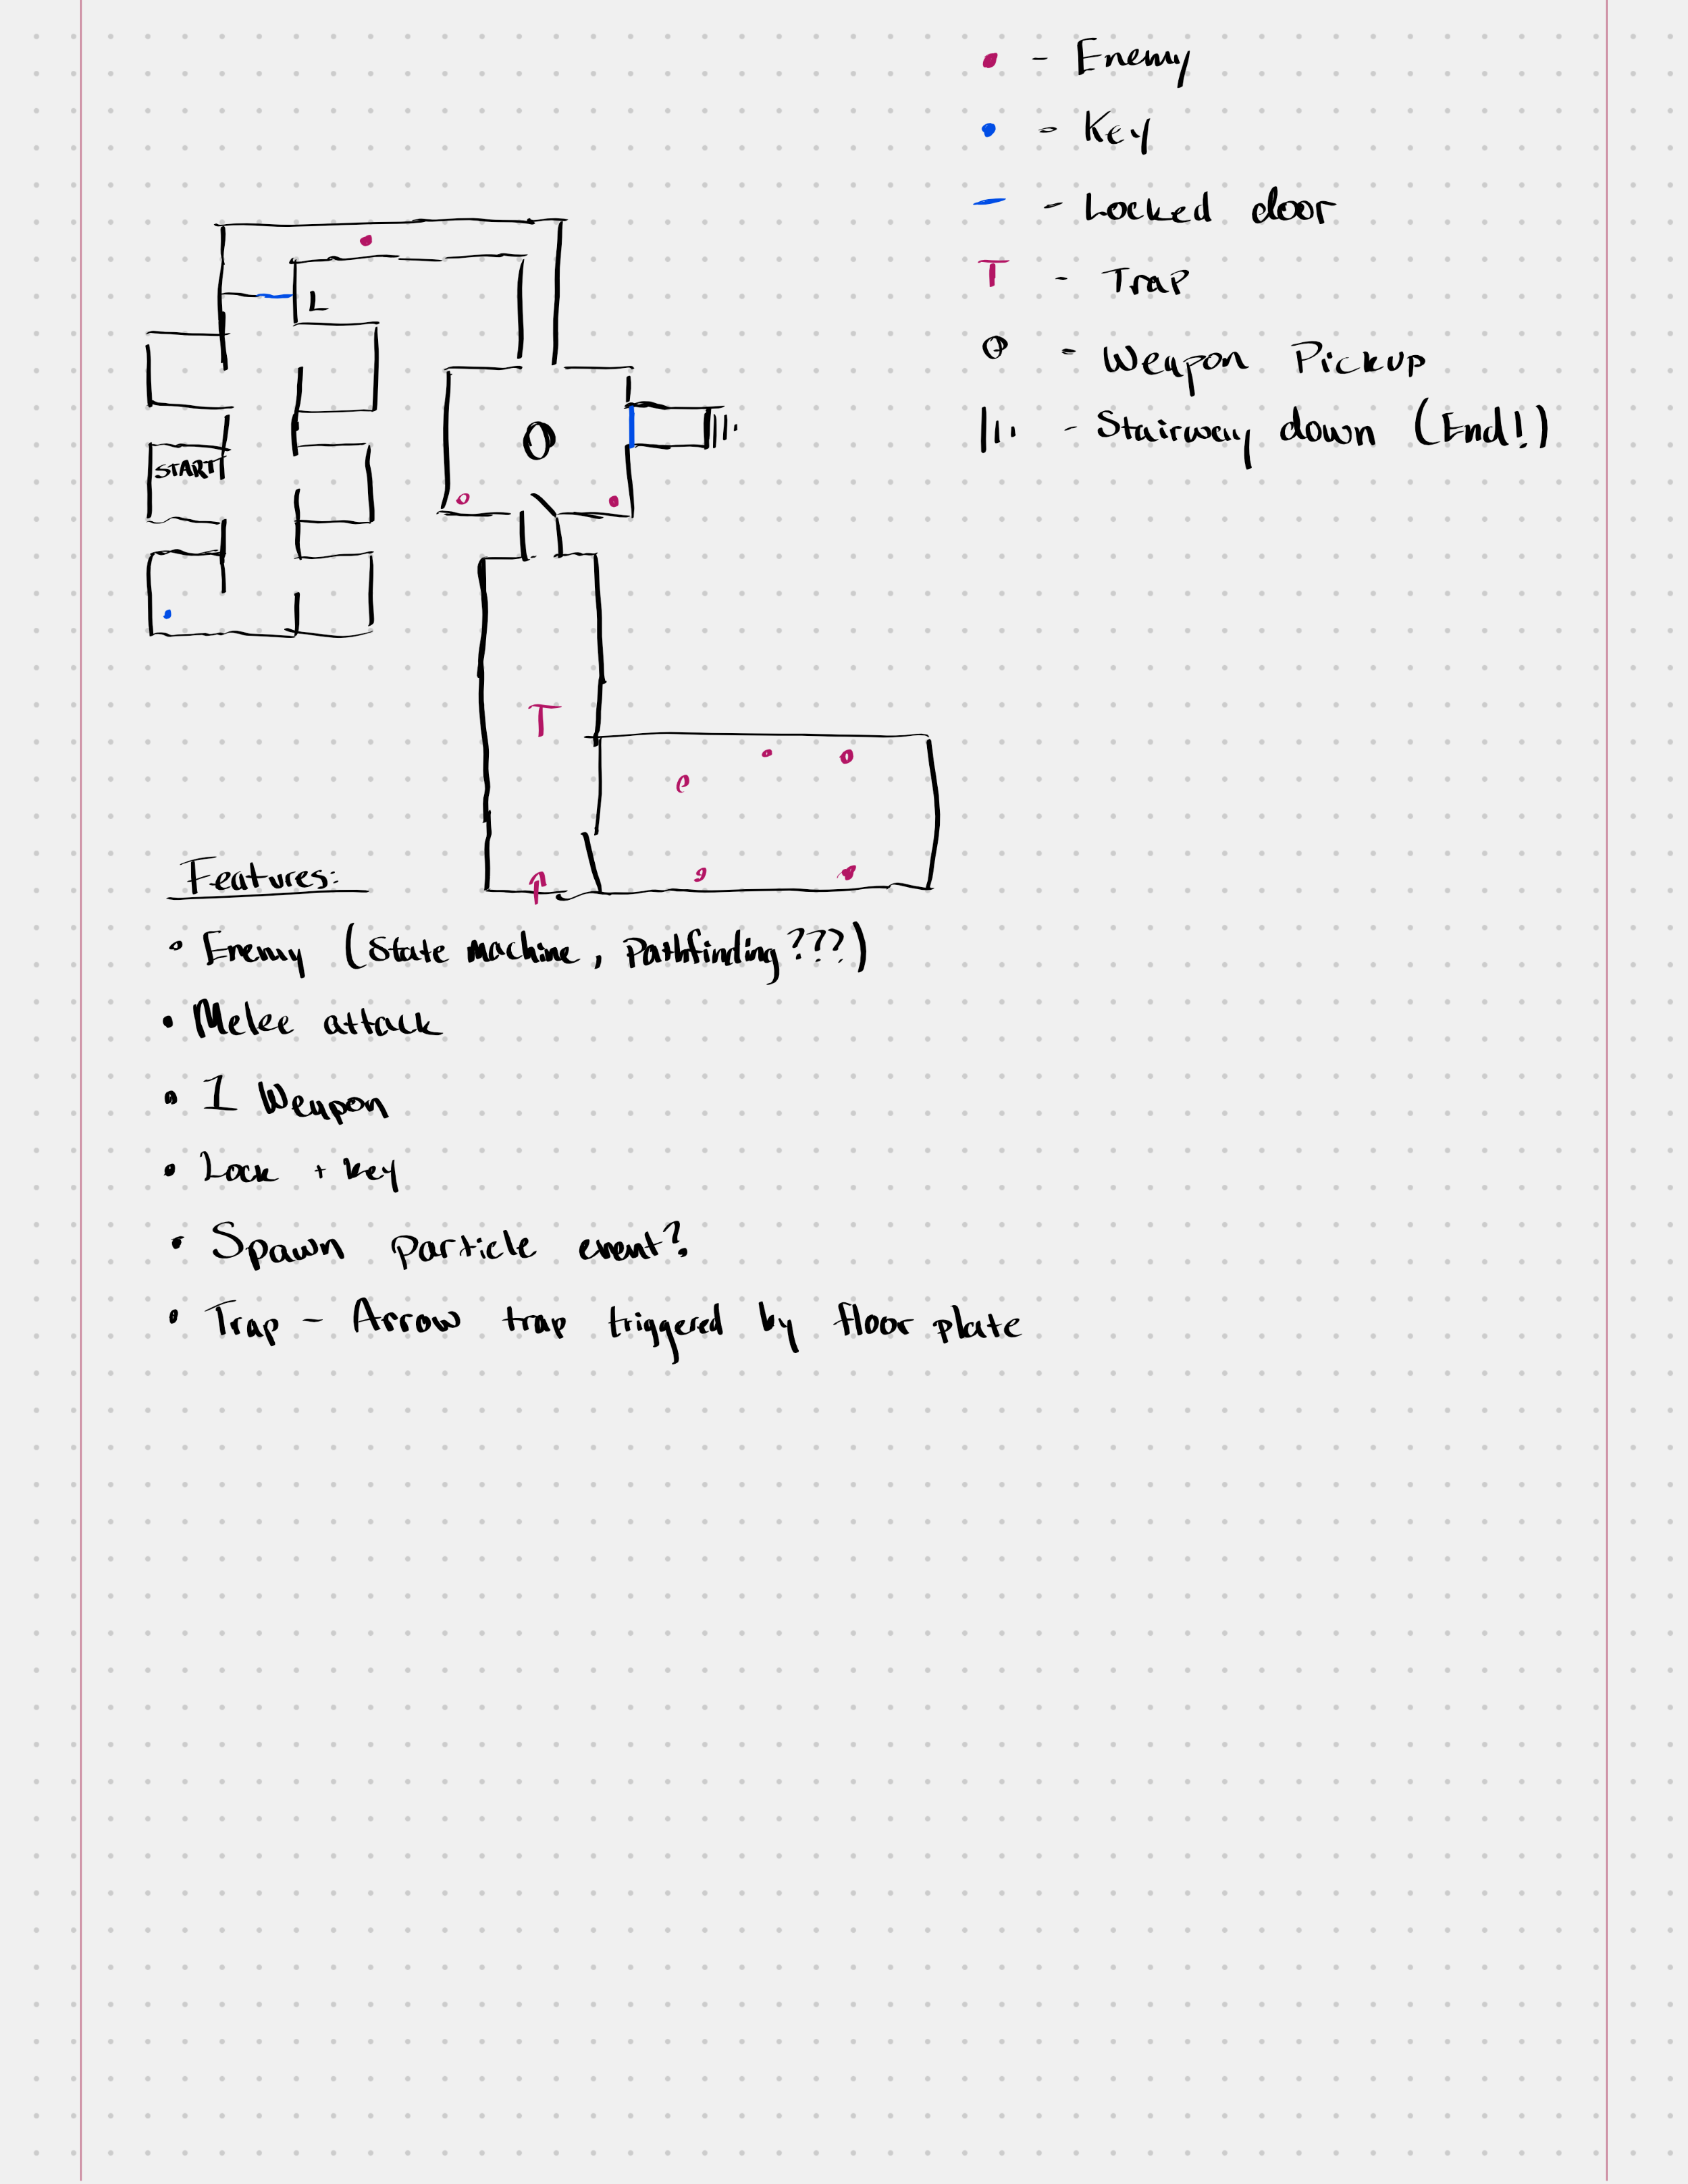 - Enemy
- Key
- Locked door
T - Trap
O - Weapon Pickup
- Stairway down (End!)
L
START
O
T
Features:
• Enemy (State machine, Pathfinding???)
• Melee attack
• 1 Weapon
• Lock + key
• Spawn particle event?
• Trap - Arrow trap triggered by floor plate